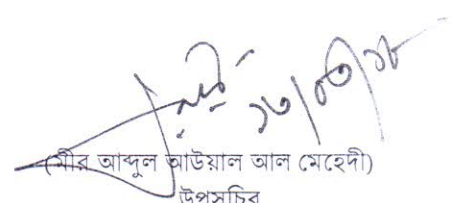 ১৩/০৩/১৮
(মীর আব্দুল আউয়াল আল মেহেদী)
উপসচিব